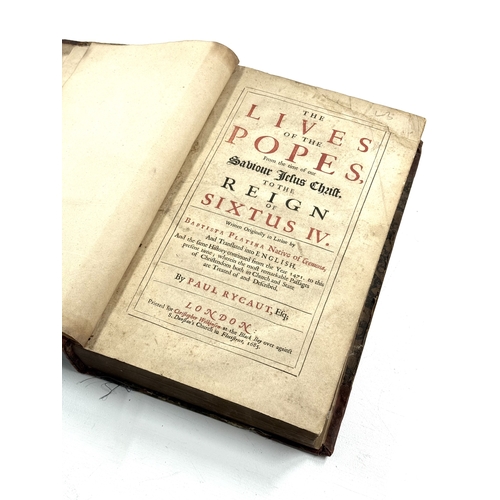 THE
LIVES
OF THE
POPES,
From the time of our
Saviour Jesus Christ,
TO THE
REIGN
OF
SIXTUS IV.
Written Originally in Latine by
BAPTISTA PLATINA Native of Cremona,
And Translated into ENGLISH.
And the same History continued from the Year 1471. to this
present time; wherein the most remarkable Passages
of Christendom both in Church and State
are Treated of and Described.
By PAUL RYCAUT, Esq;
LONDON:
Printed for Christopher Wilkinson at the Black Boy over against
S. Dunstan's Church in Fleetstreet, 1685.